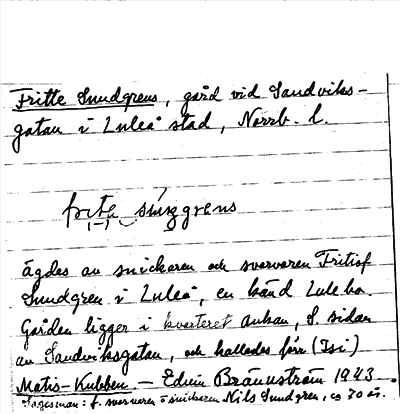 Fritte Sundgrens, gård vid Sandviks-
gatan i Luleå stad, Norrb. l.
frite sìŋgrens
ägdes av snickaren och svarvaren Fritiof
Sundgren i Luleå, en känd Lulebo.
Gården ligger i kvarteret Ankan, S. sidan
av Sandviksgatan, och kallades förr (Isi)
Matis-Kubben. – Edvin Brännström 1943.
Sagesman: f. svarvaren o snickaren Nils Sundgren, ca 70 år.